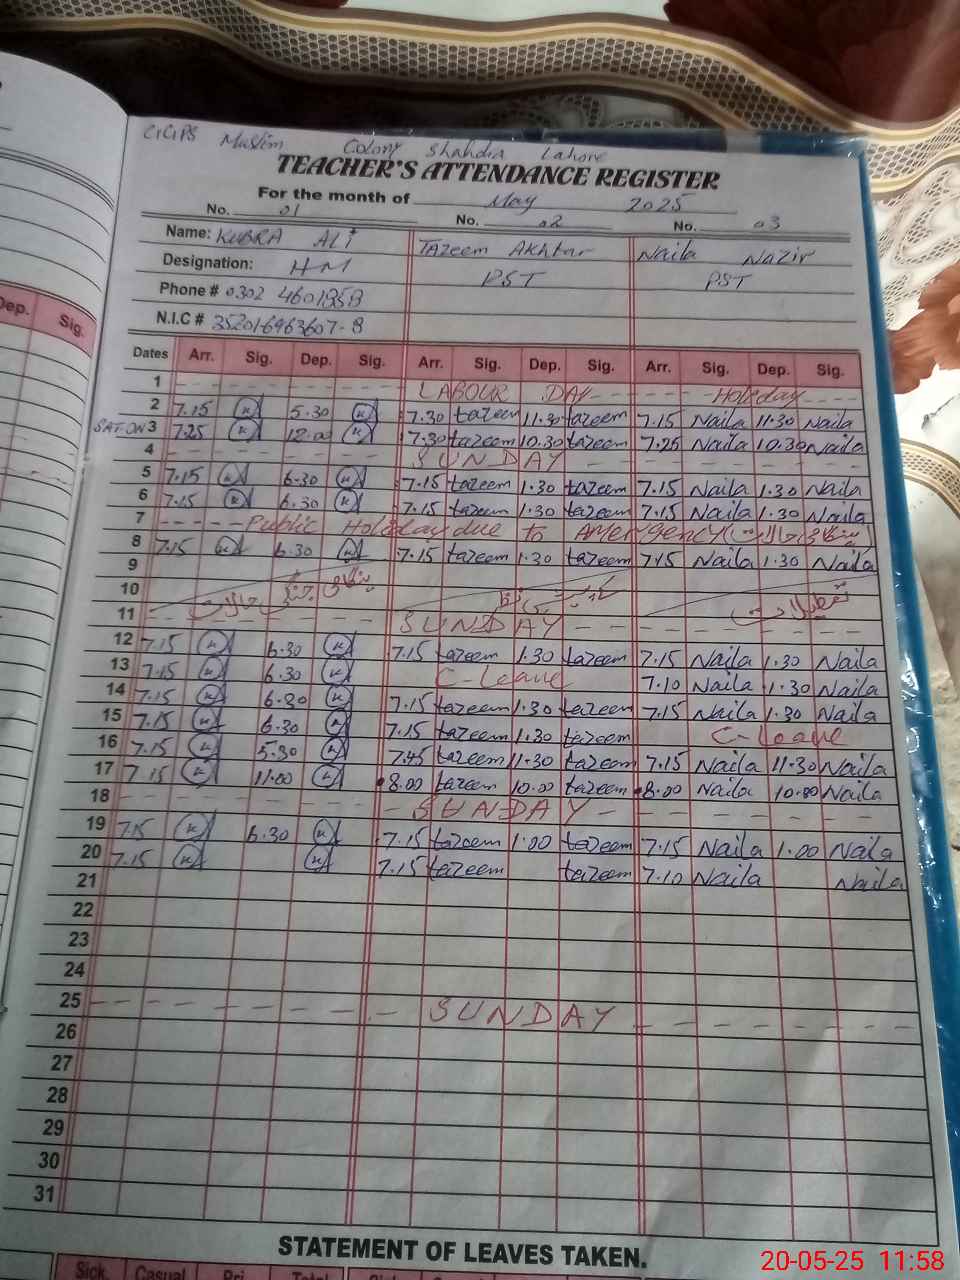 Muslim Colony Shahdra Lahore
TEACHER'S ATTENDANCE REGISTER
For the month of May 2025
No. 01 No. 02 No. 03
Name: KUBRA ALI Tazeem Akhtar Naila Nazir
Designation: HM PST PST
Phone # 0302
N.I.C #
Dates Arr. Sig. Dep. Sig. Arr. Sig. Dep. Sig. Arr. Sig. Dep. Sig.
1 LABOUR DAY Holiday
2 7.15 K 5.30 K 7.30 tazeem 11.30 tazeem 7.15 Naila 11.30 Naila
3 7.25 K 12.00 K 7.30 tazeem 10.30 tazeem 7.25 Naila 10.30 Naila
4 SUNDAY
5 7.15 K 6.30 K 7.15 tazeem 1.30 tazeem 7.15 Naila 1.30 Naila
6 7.15 K 6.30 K 7.15 tazeem 1.30 tazeem 7.15 Naila 1.30 Naila
7 Public Holiday due to Amergency (ہنگامی حالات)
8 7.15 K 6.30 K 7.15 tazeem 1.30 tazeem 7.15 Naila 1.30 Naila
9
10 ہنگامی جنگی حالات تعطیلات
11 SUNDAY
12 7.15 K 6.30 K 7.15 tazeem 1.30 tazeem 7.15 Naila 1.30 Naila
13 7.15 K 6.30 K C-Leave 7.10 Naila 1.30 Naila
14 7.15 K 6.30 K 7.15 tazeem 1.30 tazeem 7.15 Naila 1.30 Naila
15 7.15 K 6.30 K 7.15 tazeem 1.30 tazeem C-Leave
16 7.15 K 5.30 K 7.45 tazeem 11.30 tazeem 7.15 Naila 11.30 Naila
17 7.15 K 11.00 K 8.00 tazeem 10.00 tazeem 8.00 Naila 10.00 Naila
18 SUNDAY
19 7.15 K 6.30 K 7.15 tazeem 1.00 tazeem 7.15 Naila 1.00 Naila
20 7.15 K K 7.15 tazeem tazeem 7.10 Naila Naila
21
22
23
24
25 SUNDAY
26
27
28
29
30
31
STATEMENT OF LEAVES TAKEN.
Sick. Casual Pri. Total
Dep. Sig.
20-05-25 11:58